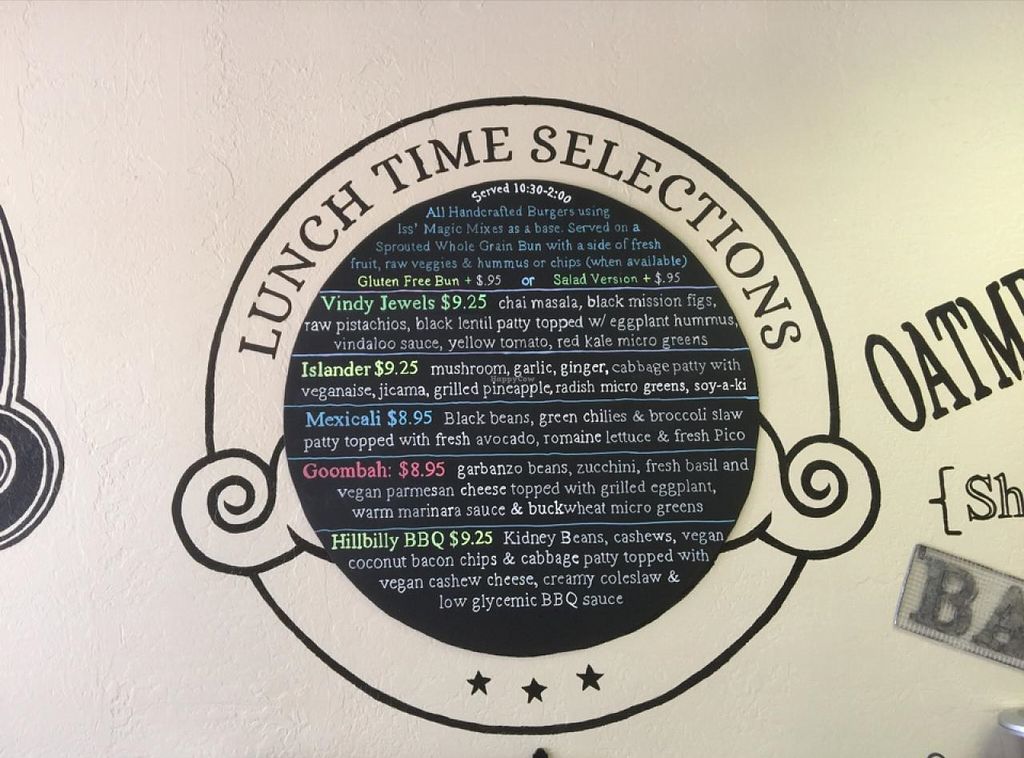 LUNCH TIME SELECTIONS
Served 10:30-2:00
All Handcrafted Burgers using
Iss' Magic Mixes as a base. Served on a
Sprouted Whole Grain Bun with a side of fresh
fruit, raw veggies & hummus or chips (when available)
Gluten Free Bun + $.95 or Salad Version + $.95
Vindy Jewels $9.25 chai masala, black mission figs,
raw pistachios, black lentil patty topped w/ eggplant hummus,
vindaloo sauce, yellow tomato, red kale micro greens
Islander $9.25 mushroom, garlic, ginger, cabbage patty with
HappyCow
veganaise, jicama, grilled pineapple, radish micro greens, soy-a-ki
Mexicali $8.95 Black beans, green chilies & broccoli slaw
patty topped with fresh avocado, romaine lettuce & fresh Pico
Goombah: $8.95 garbanzo beans, zucchini, fresh basil and
vegan parmesan cheese topped with grilled eggplant,
warm marinara sauce & buckwheat micro greens
Hillbilly BBQ $9.25 Kidney Beans, cashews, vegan
coconut bacon chips & cabbage patty topped with
vegan cashew cheese, creamy coleslaw &
low glycemic BBQ sauce
OATME
{Sh
BA